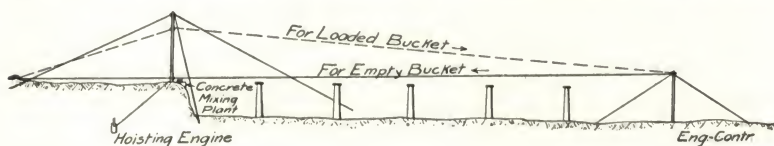 For Loaded Bucket →
For Empty Bucket ←
Concrete
Mixing
Plant
Hoisting Engine
Eng-Contr.